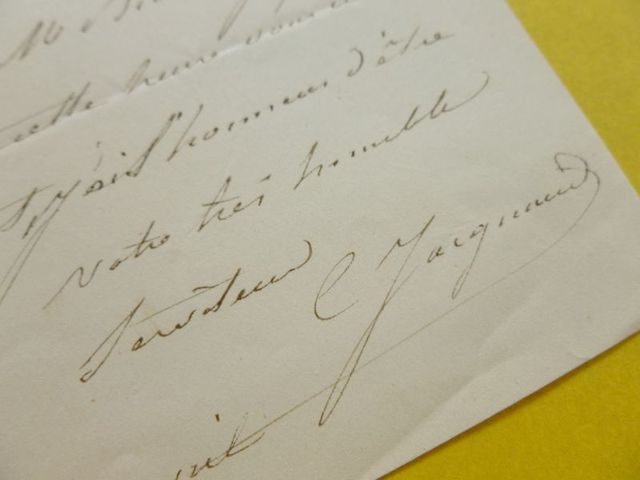 M
cette heure
J'ai l'honneur d'être
votre très humble
Serviteur C Jacquand